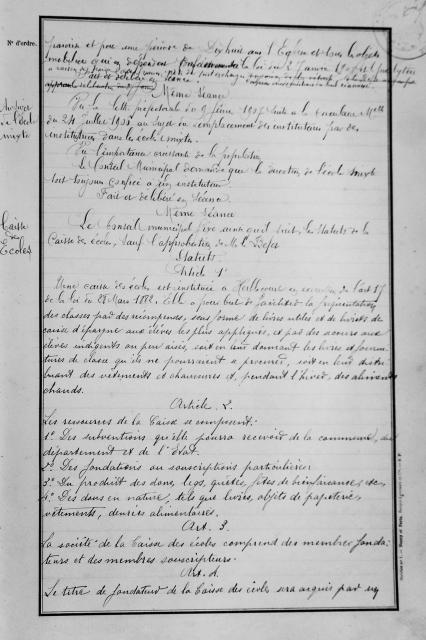 N° d'ordre.
paroisse et pour une période de Dix huit ans l'Eglise et tous les objets
mobiliers qui en dépendent la loi du 2 Janvier 1907
Fait et délibéré en séance
Même séance
Vu la lettre préfectorale du 9 Janvier 1907 suite à la circulaire Mlle
du 24 juillet 1905 au sujet du remplacement des instituteurs par des
institutrices dans les écoles mixtes.
Vu l'importance croissante de la population
Le Conseil Municipal demande que la direction de l'école mixte
soit toujours confiée à un instituteur.
Fait et délibéré en Séance
école
mixte
Même séance
Caisse
des
Ecoles
Le Conseil municipal fixe ainsi qu'il suit, les statuts de la
Caisse des écoles, sauf l'approbation de M. le Préfet
Statuts
Article 1er
Une caisse des écoles est instituée à en exécution de l'art 17
de la loi du 28 Mars 1882. Elle a pour but de faciliter la fréquentation
des classes par des récompenses, sous forme de livres utiles et de livrets de
caisse d'épargne aux élèves les plus appliqués, et par des secours aux
élèves indigents ou peu aisés, soit en leur donnant les livres et fourni-
tures de classe qu'ils ne pourraient se procurer, soit en leur distri-
buant des vêtements et chaussures et, pendant l'hiver, des aliments
chauds.
Article 2.
Les ressources de la Caisse se composent:
1° Des subventions qu'elle pourra recevoir de la commune, du
département et de l'Etat.
2° Des fondations ou souscriptions particulières
3° Du produit des dons, legs, quêtes, fêtes de bienfaisance, etc
4° Des dons en nature, tels que livres, objets de papeterie,
vêtements, denrées alimentaires.
Art. 3.
La société de la Caisse des écoles comprend des membres fonda-
teurs et des membres souscripteurs.
Art. 4.
Le titre de fondateur de la Caisse des écoles sera acquis par un